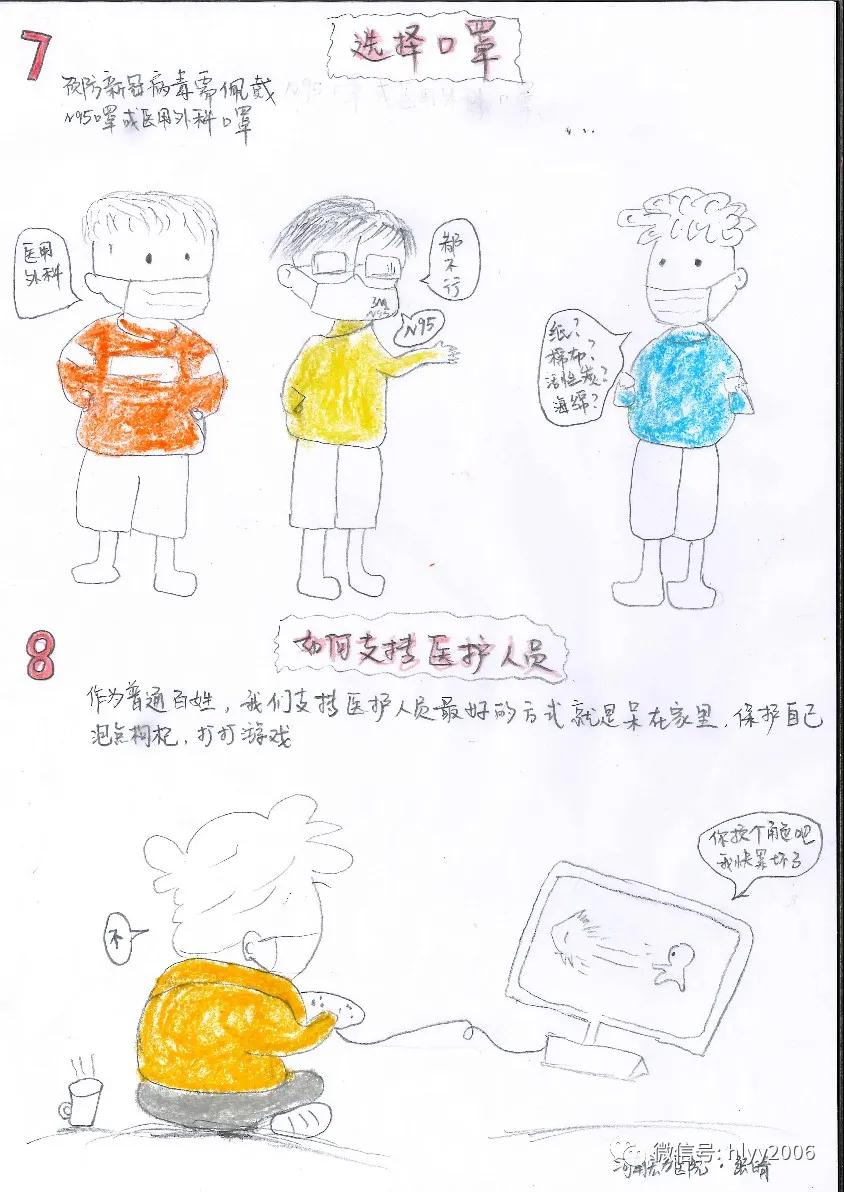 7
选择口罩
预防新冠病毒需佩戴
N95口罩或医用外科口罩
医用
外科
都
不
行
3M
N95
N95
纸?
棉布?
活性炭?
海绵?
8
如何支持医护人员
作为普通百姓,我们支持医护人员最好的方式就是呆在家里,保护自己
泡点枸杞,打打游戏
你换个角色吧
我快累坏了
不
微信号: hlyy2006
医院·张